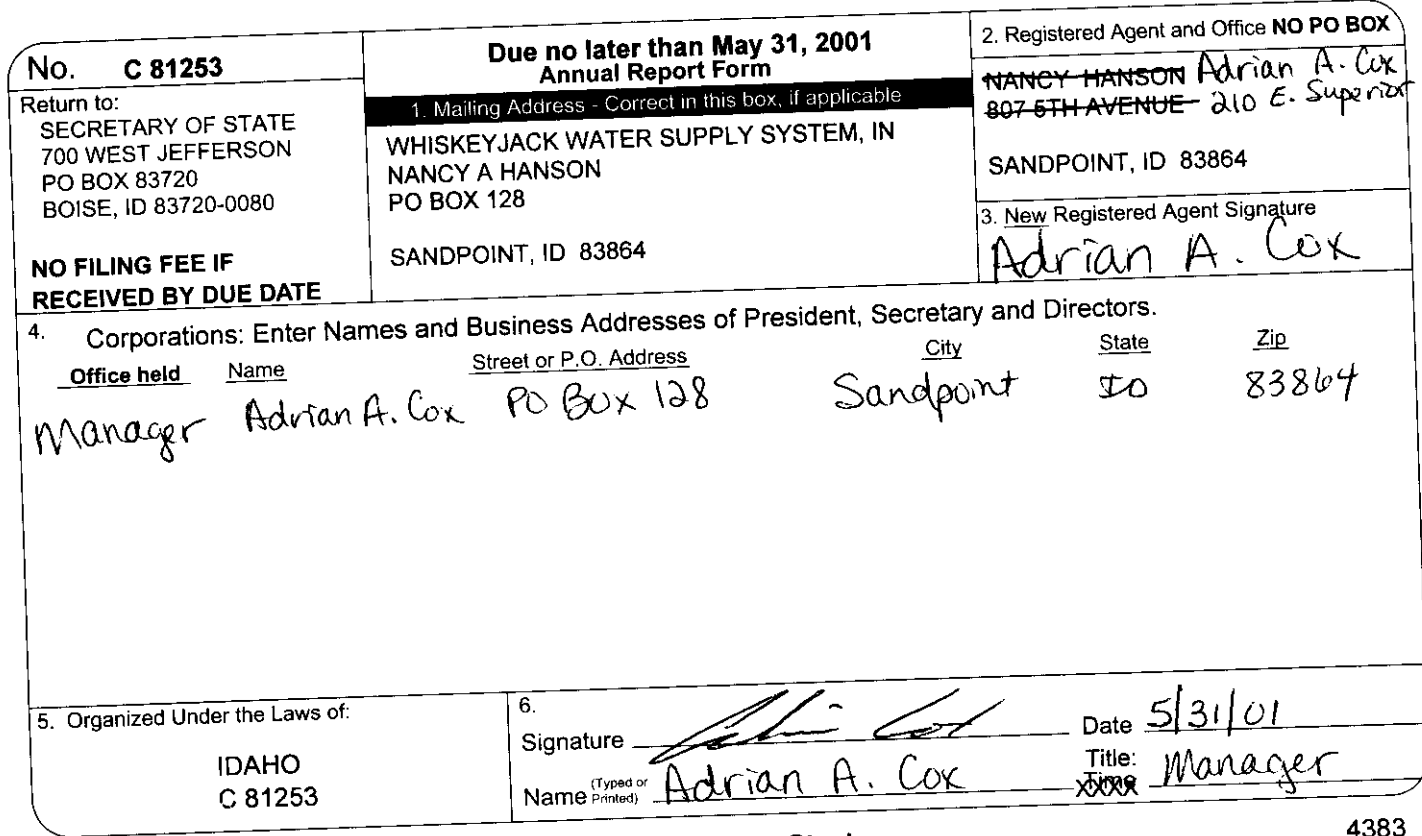 No. C 81253
Return to:
SECRETARY OF STATE
700 WEST JEFFERSON
PO BOX 83720
BOISE, ID 83720-0080
NO FILING FEE IF
RECEIVED BY DUE DATE
Due no later than May 31, 2001
Annual Report Form
1. Mailing Address - Correct in this box, if applicable
WHISKEYJACK WATER SUPPLY SYSTEM, IN
NANCY A HANSON
PO BOX 128
SANDPOINT, ID 83864
2. Registered Agent and Office NO PO BOX
NANCY HANSON Adrian A. Cox
807 5TH AVENUE 210 E. Superior
SANDPOINT, ID 83864
3. New Registered Agent Signature
Adrian A. Cox
4. Corporations: Enter Names and Business Addresses of President, Secretary and Directors.
Office held Name Street or P.O. Address City State Zip
Manager Adrian A. Cox PO Box 128 Sandpoint ID 83864
5. Organized Under the Laws of:
IDAHO
C 81253
6.
Signature Adrian Cox Date 5/31/01
Name (Typed or Printed) Adrian A. Cox Title: Manager
4383